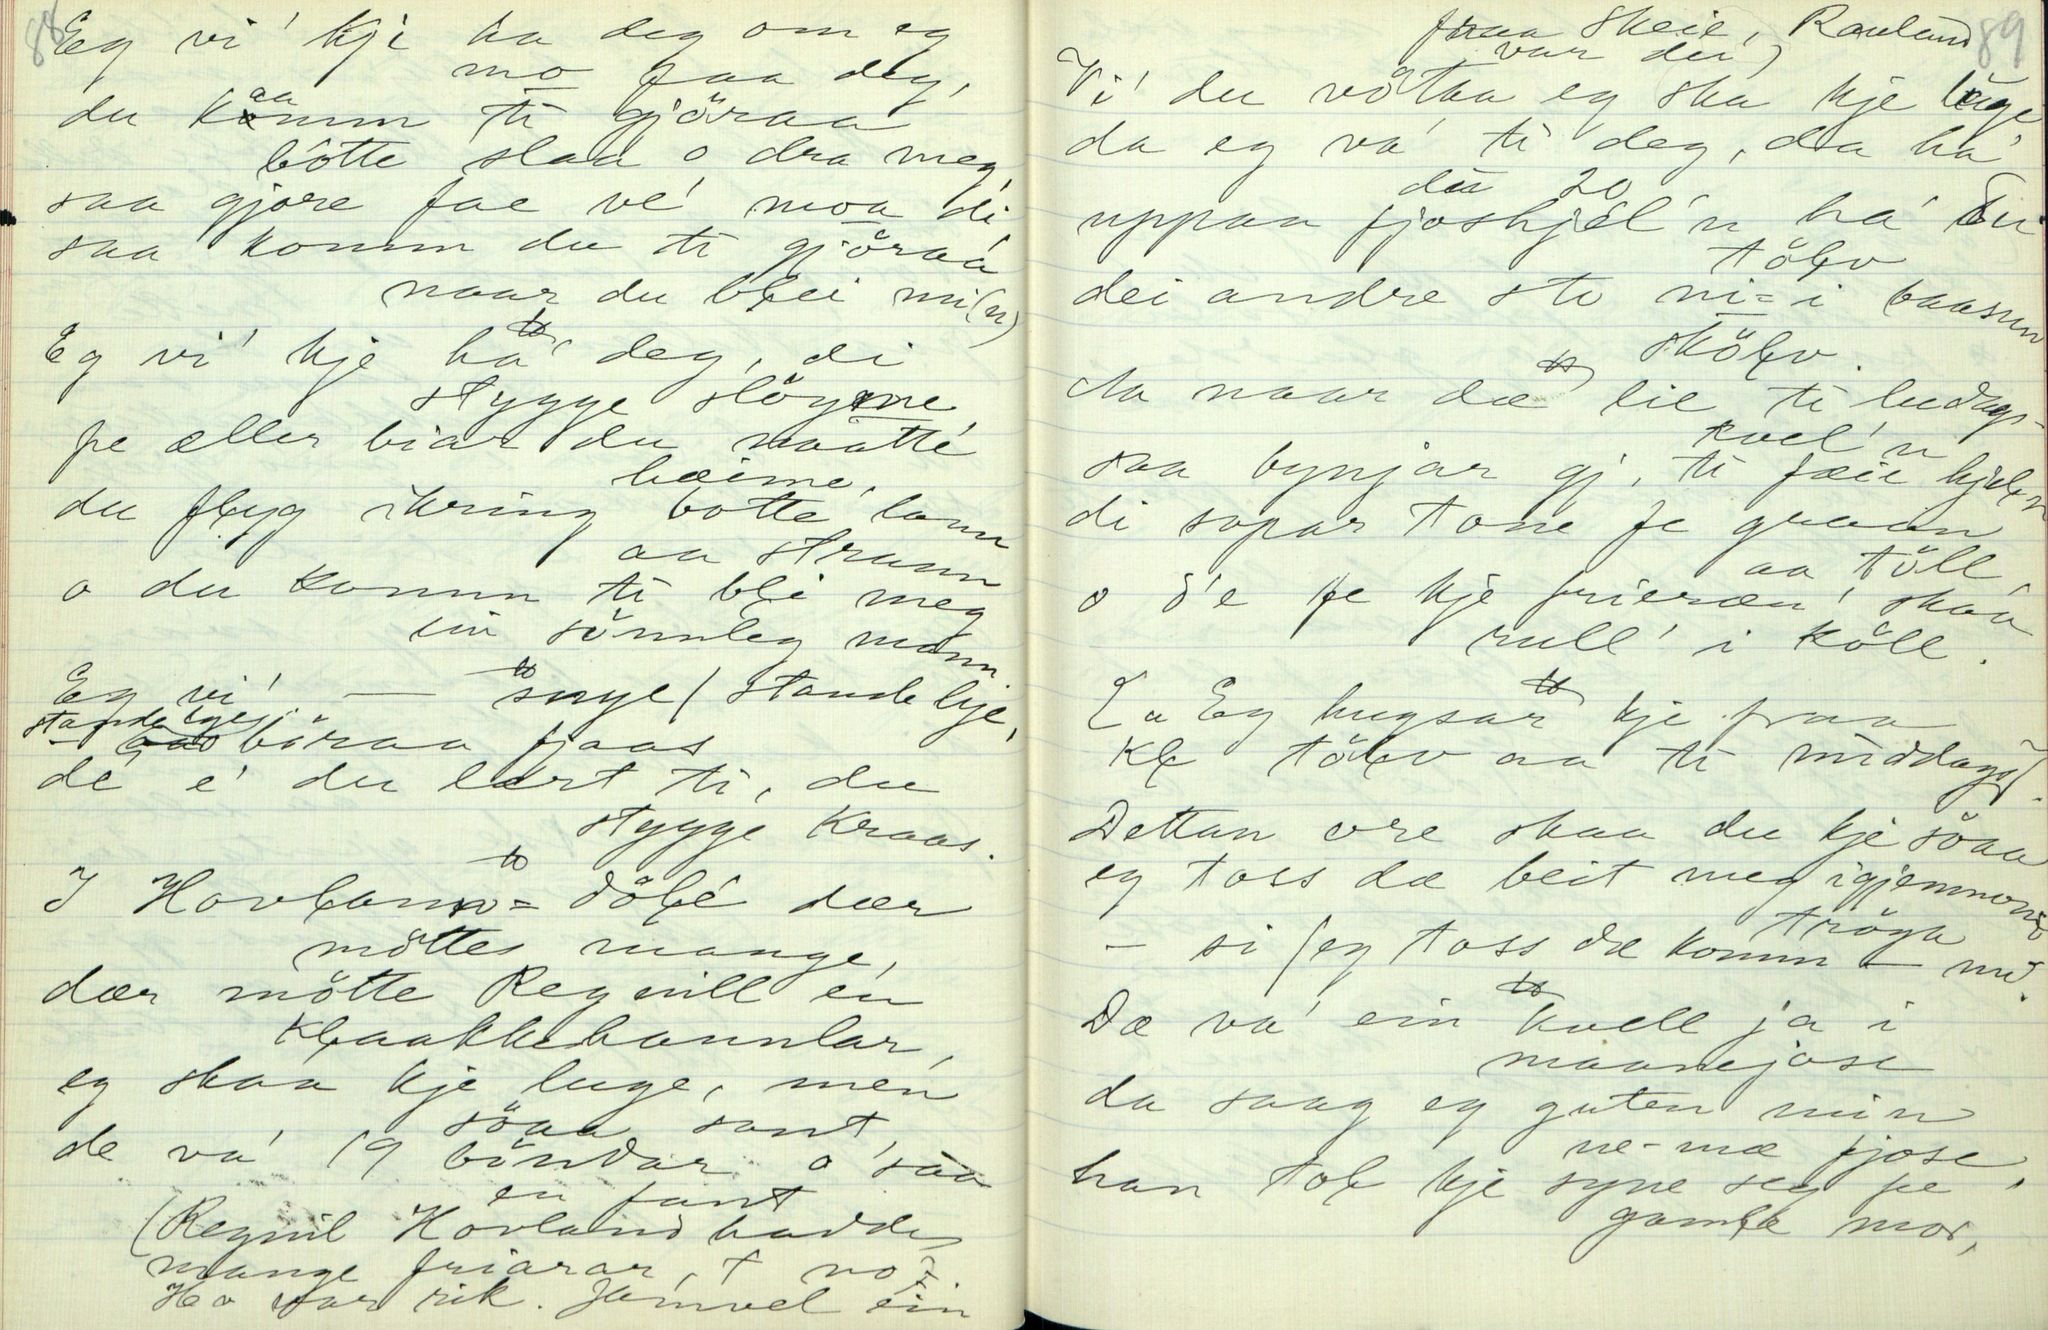 88
Eg vi' kje ha deg om eg
mo faa deg,
du kaamm ti gjöraa
bötte slaa o dra meg,
saa gjore fae ve' moa di
saa komm du ti gjöraa
naar du blei mi(n)
Eg vi' kje ha' deg, di
stygge slöyme,
fe æller biar du maatte'
heime,
du flyg ikring botte' lann
aa strann
o du komm ti bli meg
ein sönnleg mann
Eg vi' — snye / standelije,
standeliges
— böraa fjaas
de' e' du lært ti, du
stygge Kraas.
I Hovlann = dölé dær
möttes mange,
dær mötte Regnill en
Klaakkehannlar,
eg skaa kje luge, men
söaa sant,
de va' 19 böndar o' saa
en fant
(Regnil Hovland hadde
mange friarar, t no
Ho var rik. Jamvel ein
89
fraa Skeie, Rauland
var dei)
Vi' du vötta eg ska kje luge,
da eg va' ti deg, da ha'
du 20
uppaa fjoshjél'n ha' du
tölv
dei andre sto ni = i baasen
skölv.
da naar dæ lie ti ludags-
kvel'n
saa bynjar gj, ti feie hjeln
di sopar tone fe graan
aa töll,
o d'e fe kje frieræn' skaa
rull' i köll.
[a Eg hugsar kje fraa
Kl tölv aa ti middags].
Dettan ore skaa du kje söaa
eg toss dæ beit meg igjennom
tröya
— si / eg toss dæ komm — mi.
Dæ va' ein kvell ja i
maanejose
da saag eg guten min
ne-mæ fjose,
han tol kje syne seg fe
gamle mor,